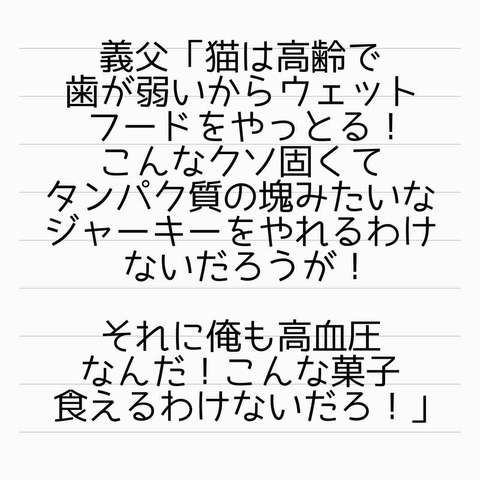 義父「猫は高齢で
歯が弱いからウェット
フードをやっとる！
こんなクソ固くて
タンパク質の塊みたいな
ジャーキーをやれるわけ
ないだろうが！
それに俺も高血圧
なんだ！こんな菓子
食えるわけないだろ！」